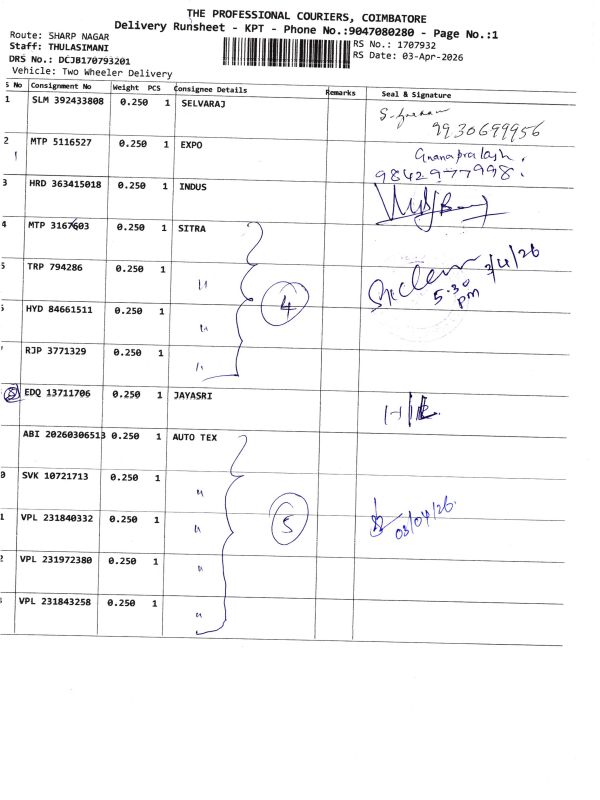 THE PROFESSIONAL COURIERS, COIMBATORE
Delivery Runsheet - KPT - Phone No.:9047080280 - Page No.:1
Route: SHARP NAGAR
RS No.: 1707932
Staff: THULASIMANI
RS Date: 03-Apr-2026
DRS No.: DCJB170793201
Vehicle: Two Wheeler Delivery
S No Consignment No Weight PCS Consignee Details Remarks Seal & Signature
1 SLM 392433808 0.250 1 SELVARAJ
9930699956
2 MTP 5116527 0.250 1 EXPO Gnanaprakash.
9842977998.
3 HRD 363415018 0.250 1 INDUS
4 MTP 3167603 0.250 1 SITRA
5 TRP 794286 0.250 1 " 4 3/4/26
5.30 pm
6 HYD 84661511 0.250 1 "
7 RJP 3771329 0.250 1 "
8 EDQ 13711706 0.250 1 JAYASRI
ABI 20260306513 0.250 1 AUTO TEX
0 SVK 10721713 0.250 1 "
1 VPL 231840332 0.250 1 " 5 03/04/26.
2 VPL 231972380 0.250 1 "
3 VPL 231843258 0.250 1 "